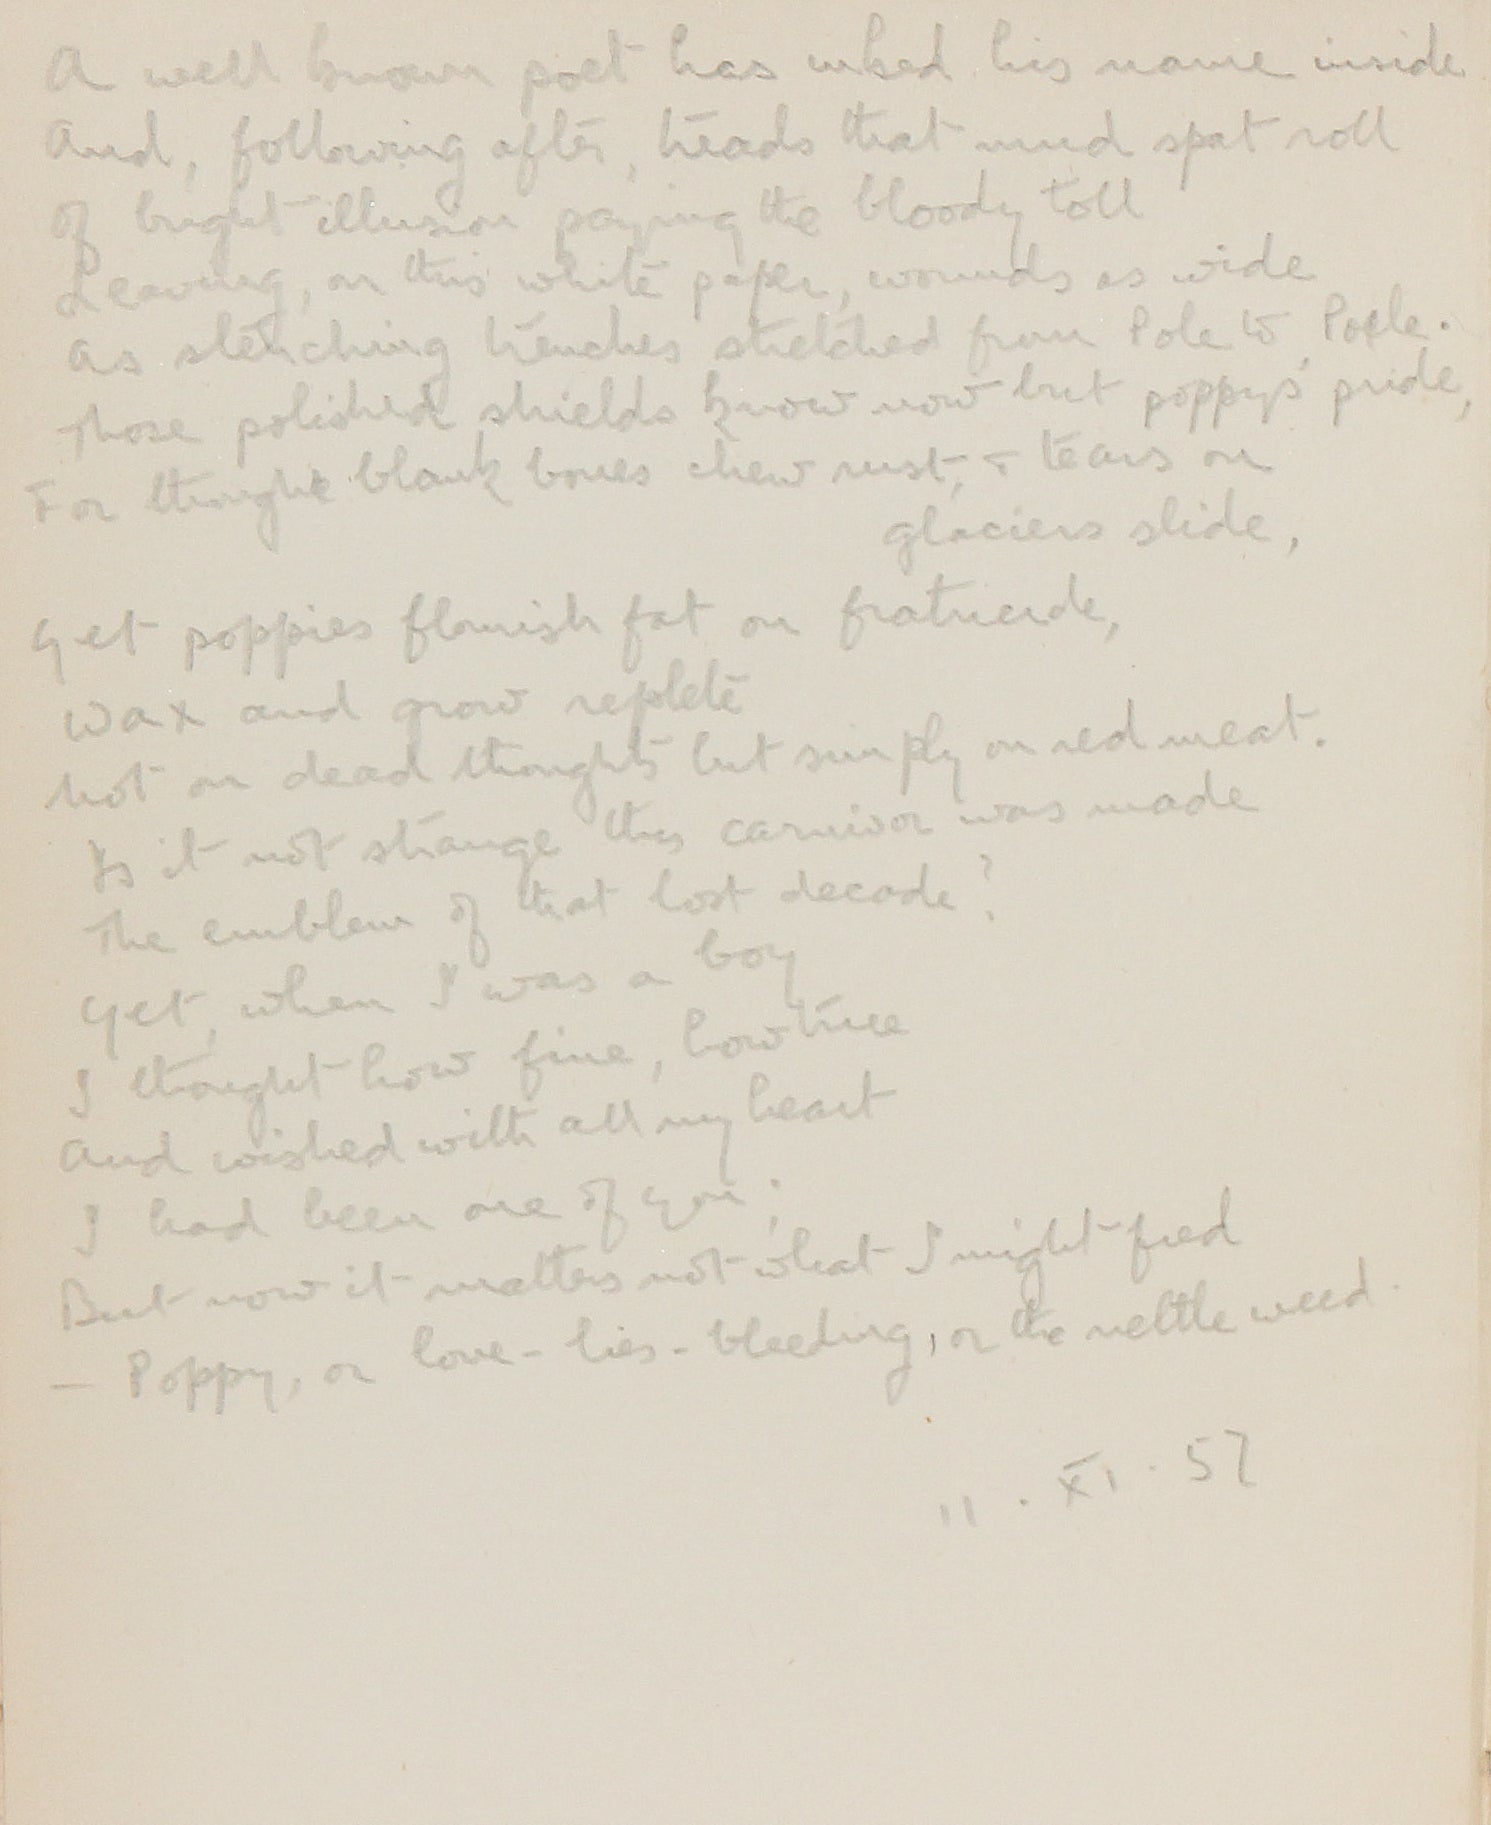 A well known poet has inked his name inside
And, following after, treads that mud spat roll
Of bright illusion paying the bloody toll
Leaving, on this white paper, wounds as wide
As stenching trenches stretched from Pole to Pole.
Those polished shields know now but poppys' pride,
For though blank bones chew rust, + tears on
glaciers slide,
Yet poppies flourish fat on fratricide,
Wax and grow replete
Not on dead thoughts but simply on red meat.
Is it not strange this carnivor was made
The emblem of that lost decade?
Yet, when I was a boy
I thought how fine, how true
And wished with all my heart
I had been one of you;
But now it matters not what I might feed
— Poppy, or love-lies-bleeding, or the nettle weed.
11 . XI . 57